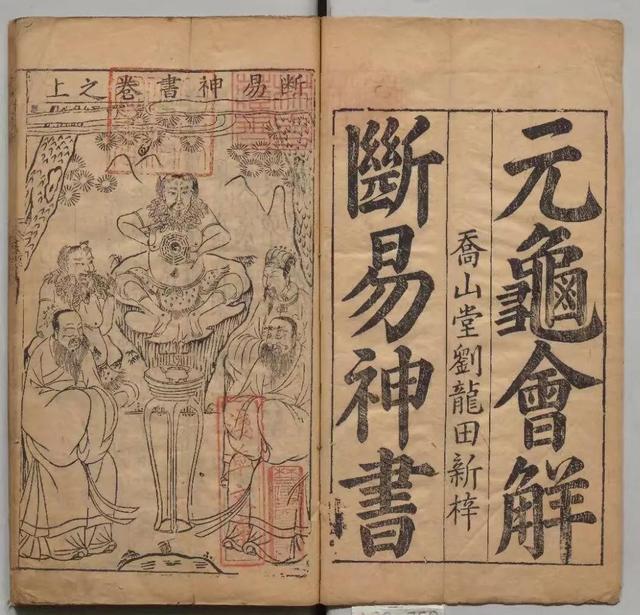 元龜會解
喬山堂劉龍田新梓
斷易神書
斷易神書卷之上